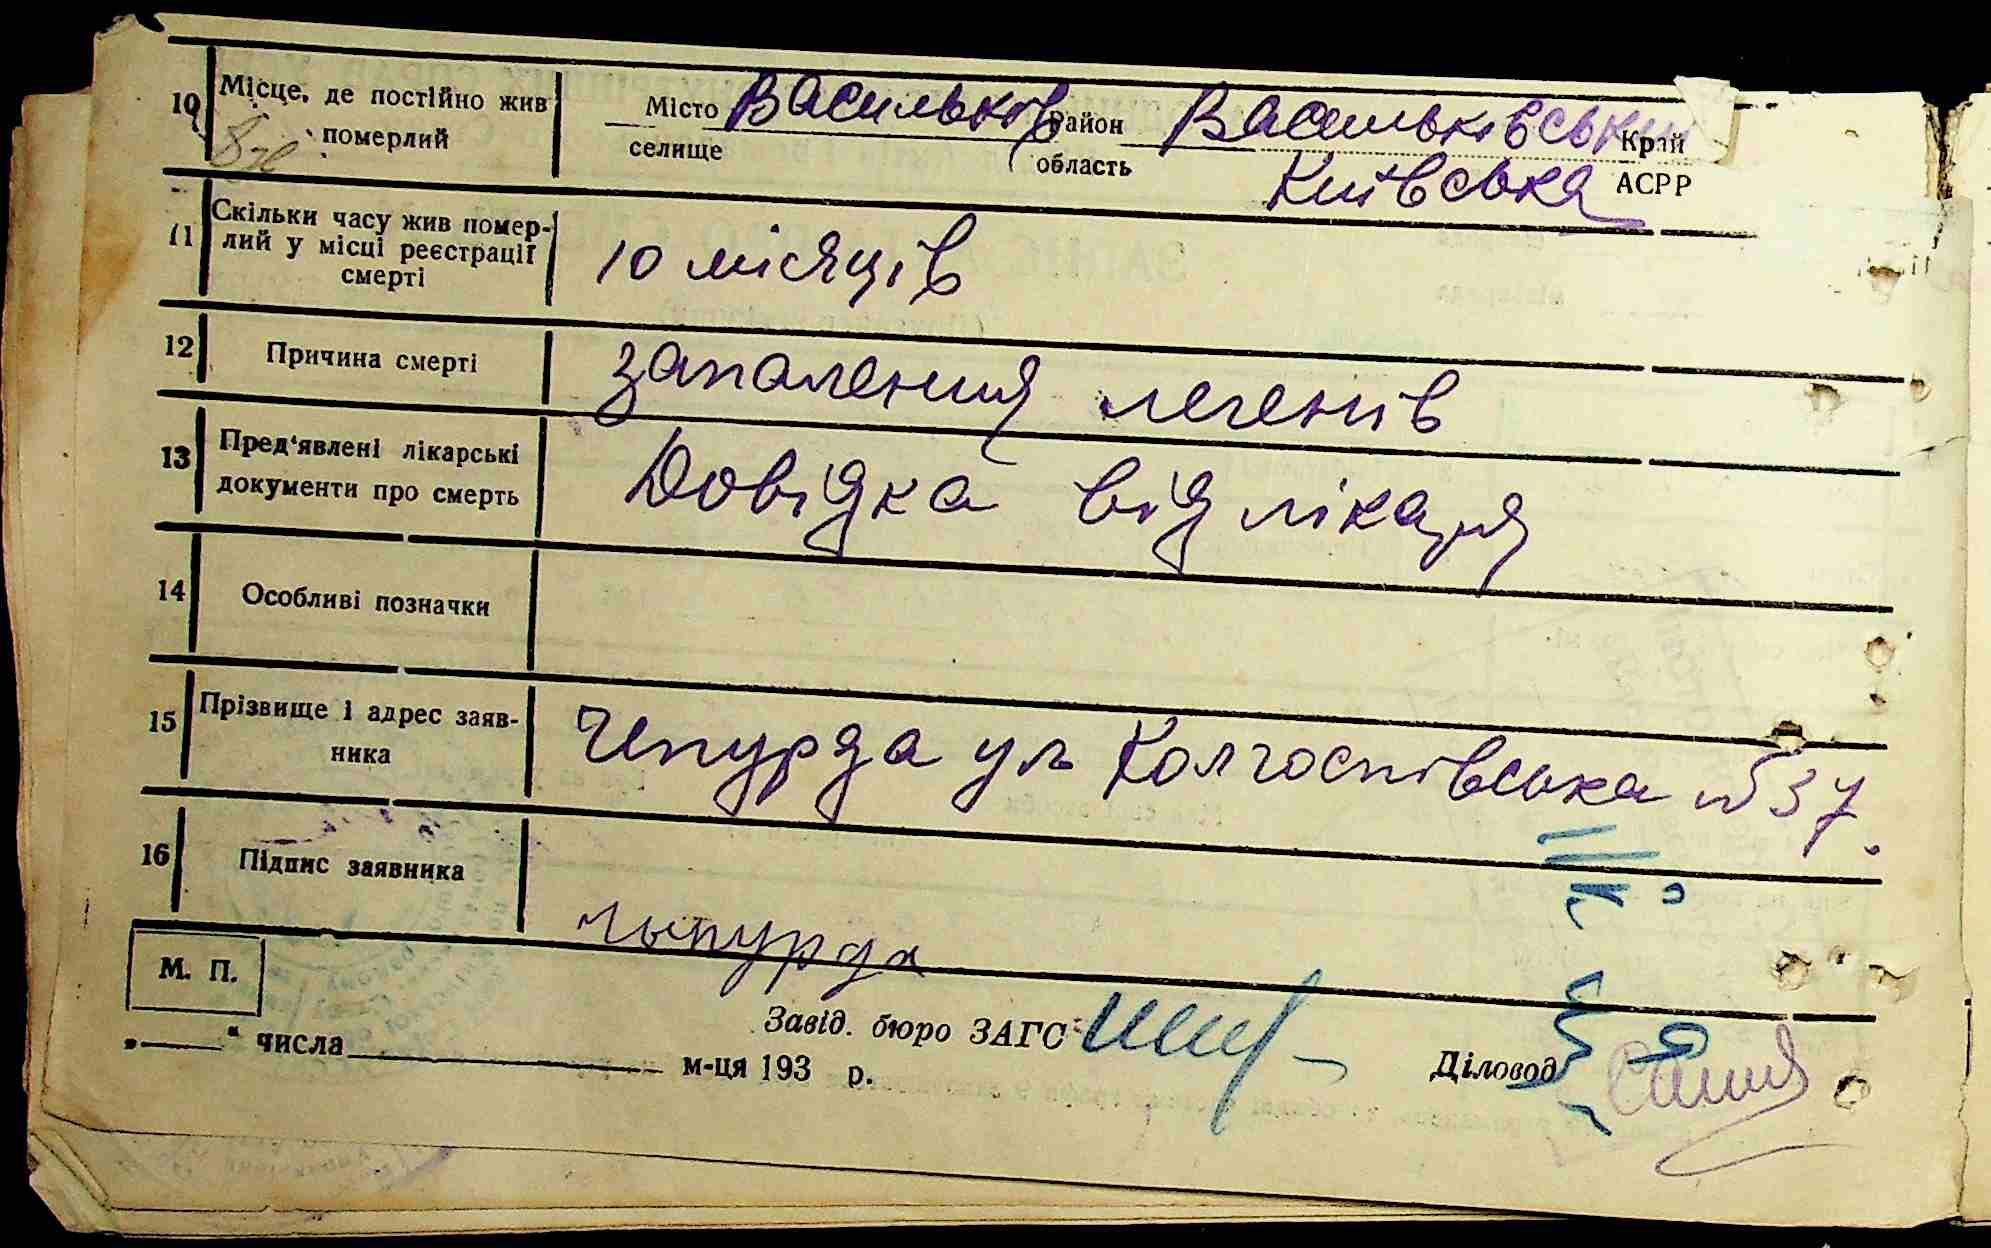 10 Місце, де постійно жив Місто Васильків Район Васильківський Край
померлий селище область Київська АСРР
11 Скільки часу жив помер-
лий у місці реєстрації 10 місяців
смерті
12 Причина смерті запалення легенів
13 Пред'явлені лікарські Довідка від лікаря
документи про смерть
14 Особливі позначки
15 Прізвище і адрес заяв- Чепурда ул Колгоспівська № 37.
ника
16 Підпис заявника чыпурда
М. П.
Завід. бюро ЗАГС Діловод
„—“ числа м-ця 193 р.